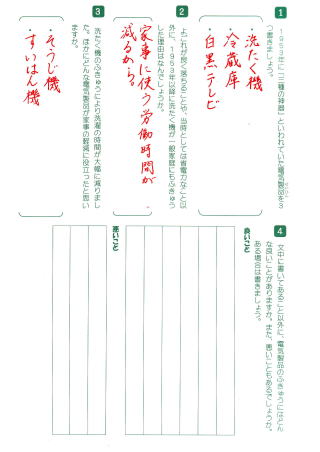 1 1953年に「三種の神器」といわれていた電気製品を3
つ書きましょう。
・洗たく機
・冷蔵庫
・白黒テレビ
2 よごれが良く落ちることや、当時としては省電力なこと以
外に、1953年以降に洗たく機が一般家庭にもふきゅう
した理由はなんでしょうか。
家事に使う労働時間が
減るから。
3 洗たく機のふきゅうにより洗濯の時間が大幅に減りまし
た。ほかにどんな電気製品が家事の軽減に役立ったと思い
ますか。
・そうじ機
・すいはん機
4 文中に書いてあること以外に、電気製品のふきゅうにはどん
な良いことがありますか。また、悪いこともあるでしょうか。
ある場合は書きましょう。
良いこと
悪いこと